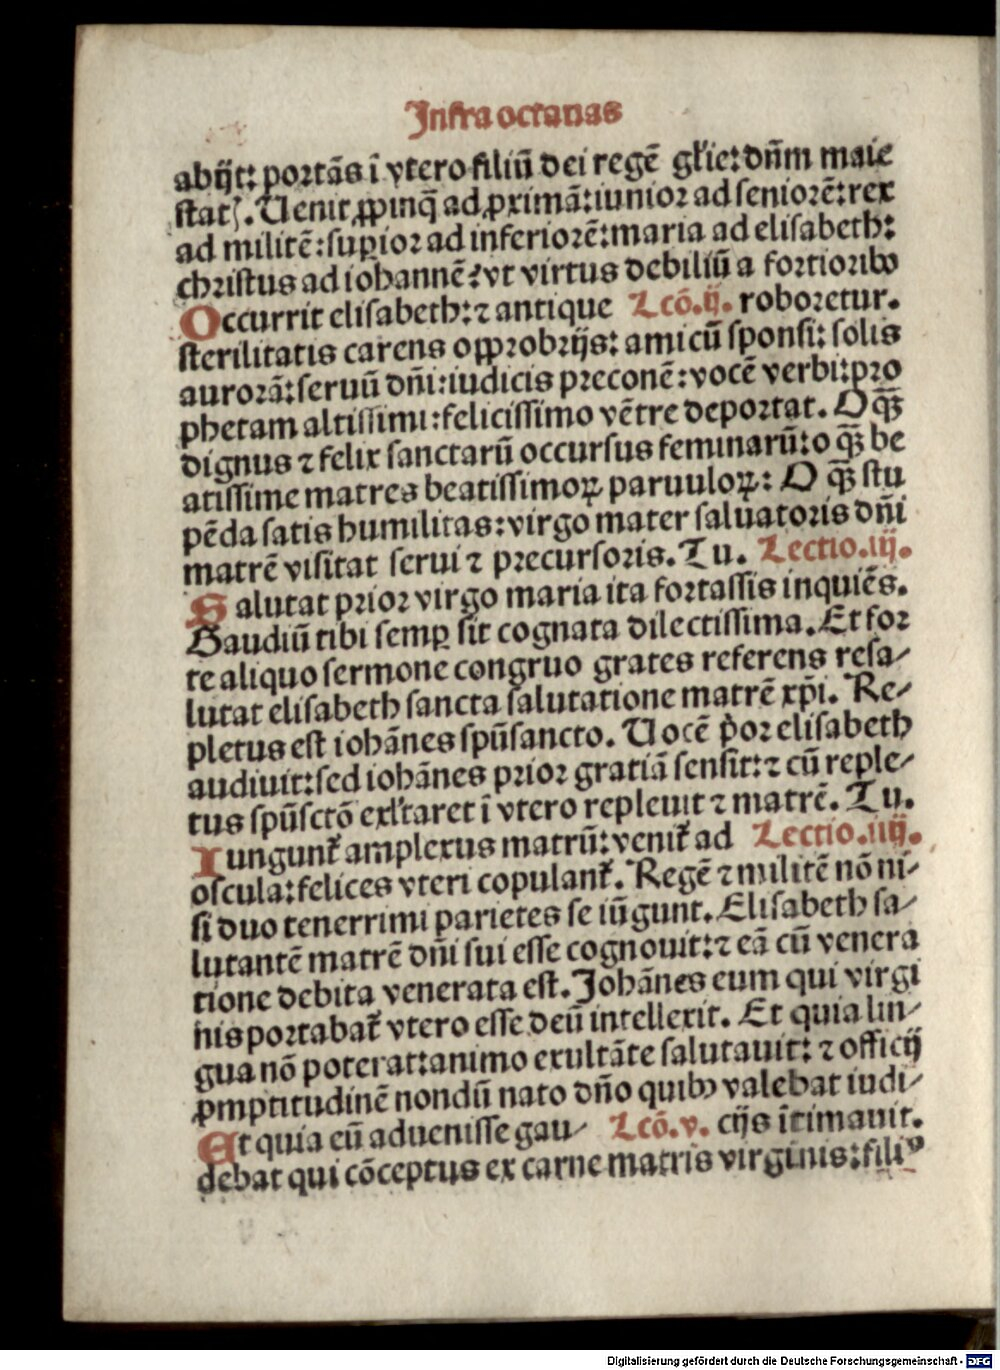 Infra octauas
abijt: portãs ĩ vtero filiũ dei regẽ gl'ie: dñm maie
statꝭ. Uenit ꝓpinq̃ ad ꝓximã: iunior ad seniorẽ: rex
ad militẽ: suꝑior ad inferiorẽ: maria ad elisabeth:
christus ad iohannẽ: vt virtus debiliũ a fortiorib⁹
Occurrit elisabeth: ⁊ antique Lcõ.ij. roboretur.
sterilitatis carens opꝓbrijs: amicũ sponsi: solis
aurorã: seruũ dñi: iudicis preconẽ: vocẽ verbi: pro
phetam altissimi: felicissimo vẽtre deportat. O q̃ꝫ
dignus ⁊ felix sanctarũ occursus feminarũ: o q̃ꝫ be
atissime matres beatissimoꝝ paruuloꝝ: O q̃ꝫ stu
pẽda satis humilitas: virgo mater saluatoris dñi
matrẽ visitat serui ⁊ precursoris. Tu. Lectio.iij.
Salutat prior virgo maria ita fortassis inquiẽs.
Gaudiũ tibi semꝑ sit cognata dilectissima. Et for
te aliquo sermone congruo grates referens resa⸗
lutat elisabeth sancta salutatione matrẽ xp̃i. Re⸗
pletus est iohãnes spũsancto. Uocẽ p̓or elisabeth
audiuit: sed iohãnes prior gratiã sensit: ⁊ cũ reple⸗
tus spũsctõ exl'taret ĩ vtero repleuit ⁊ matrẽ. Tu.
Iungunt̃ amplexus matrũ: venit̃ ad Lectio.iiij.
oscula: felices vteri copulant̃. Regẽ ⁊ militẽ nõ ni⸗
si duo tenerrimi parietes se iũgunt. Elisabeth sa⸗
lutantẽ matrẽ dñi sui esse cognouit: ⁊ eã cũ venera
tione debita venerata est. Johãnes eum qui virgi
nis portabat̃ vtero esse deũ intellexit. Et quia lin⸗
gua nõ poterat: animo exultãte salutauit: ⁊ officij
ꝓmptitudinẽ nondũ nato dño quib⁹ valebat iudi⸗
Et quia eũ aduenisse gau⸗ Lcõ.v. cijs ĩtimauit.
debat qui cõceptus ex carne matris virginis: fili⁹
Digitalisierung gefördert durch die Deutsche Forschungsgemeinschaft - DFG